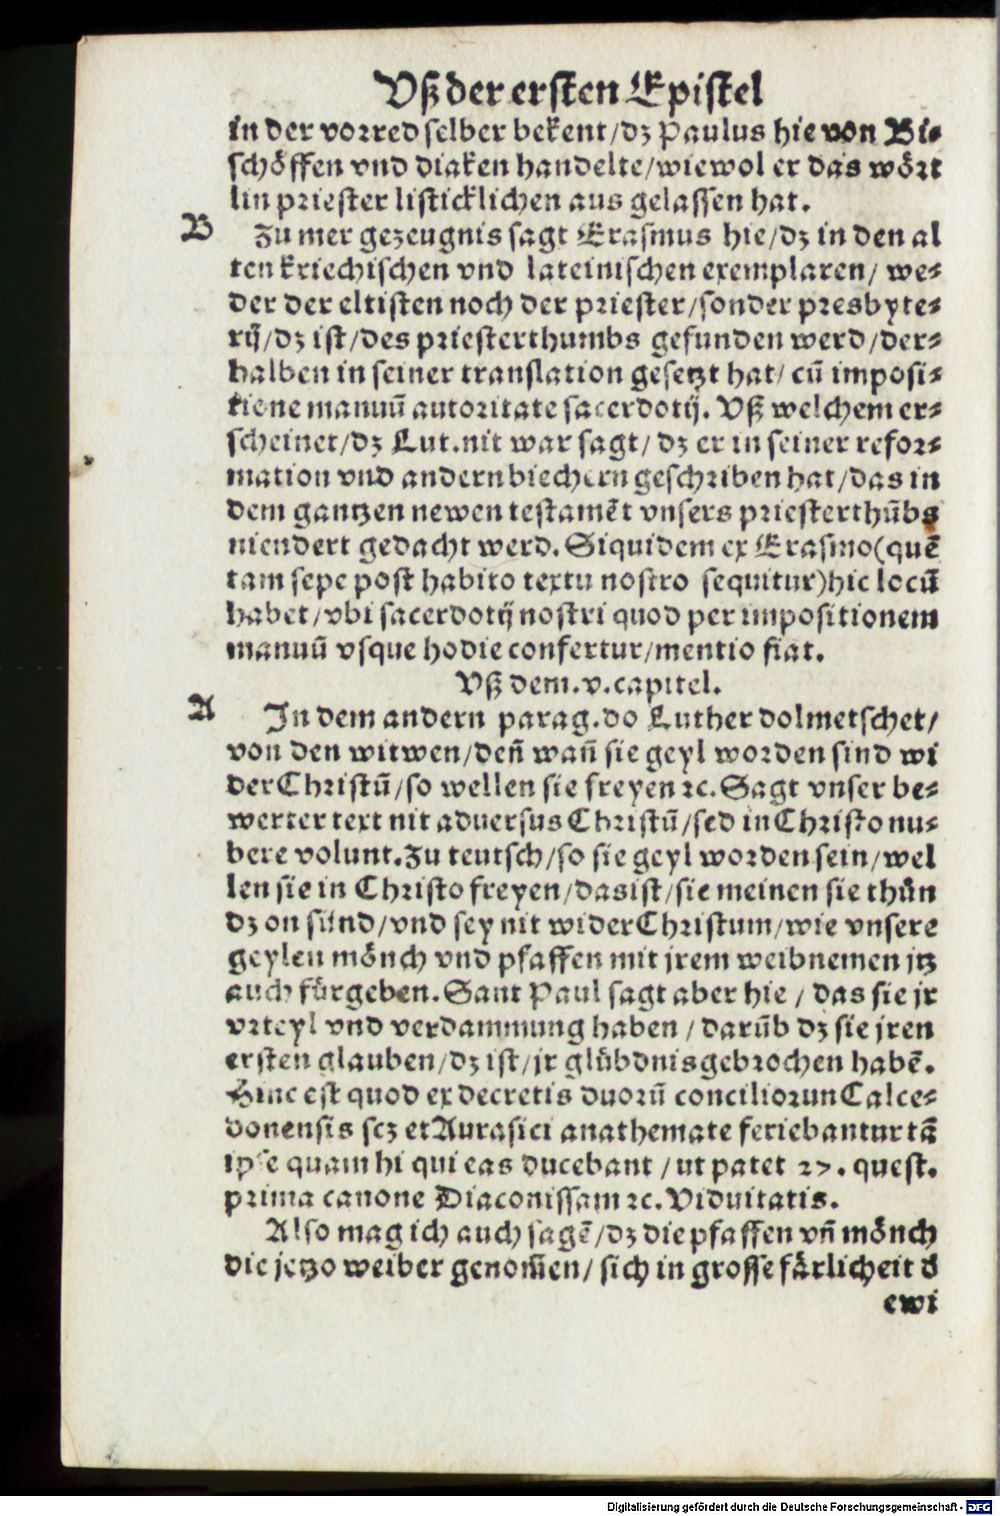 Vß der ersten Epistel
in der vorred selber bekent/dz Paulus hie von Bi⸗
schöffen vnd diaken handelte/wiewol er das wört
lin priester listicklichen aus gelassen hat.
B Zu mer gezeugnis sagt Erasmus hie/dz in den al
ten kriechischen vnd lateinischen exemplaren/ we⸗
der der eltisten noch der priester/sonder presbyte⸗
rij/dz ist/des priesterthumbs gefunden werd/der⸗
halben in seiner translation gesetzt hat/ cū imposi⸗
tione manuū autoritate sacerdotij. Vß welchem er⸗
scheinet/dz Lut.nit war sagt/ dz er in seiner refor⸗
mation vnd andern biechern geschriben hat/das in
dem gantzen newen testamēt vnsers priesterthūbs
niendert gedacht werd. Siquidem ex Erasmo(quē
tam sepe post habito textu nostro sequitur)hic locū
habet/vbi sacerdotij nostri quod per impositionem
manuū vsque hodie confertur/mentio fiat.
Vß dem.v.capitel.
A In dem andern parag.do Luther dolmetschet/
von den witwen/den̄ wan̄ sie geyl worden sind wi
der Christū/so wellen sie freyen ꝛc. Sagt vnser be⸗
werter text nit aduersus Christū/sed in Christo nu⸗
bere volunt. Zu teutsch/so sie geyl worden sein/wel
len sie in Christo freyen/das ist/sie meinen sie thůn
dz on sünd/vnd sey nit wider Christum/wie vnsere
geylen mönch vnd pfaffen mit jrem weibnemen jtz
auch fürgeben. Sant Paul sagt aber hie / das sie jr
vrteyl vnd verdammung haben / darūb dz sie jren
ersten glauben/dz ist/jr glübdnis gebrochen habē.
Hinc est quod ex decretis duorū conciliorun Calce⸗
donensis scz et Aurasici anathemate feriebantur tā
ipse quam hi qui eas ducebant /ut patet 27. quest.
prima canone Diaconissam ꝛc. Viduitatis.
Also mag ich auch sagē/dz die pfaffen vn̄ mönch
die jetzo weiber genom̄en/ sich in grosse färlicheit d̄
ewi
Digitalisierung gefördert durch die Deutsche Forschungsgemeinschaft - DFG